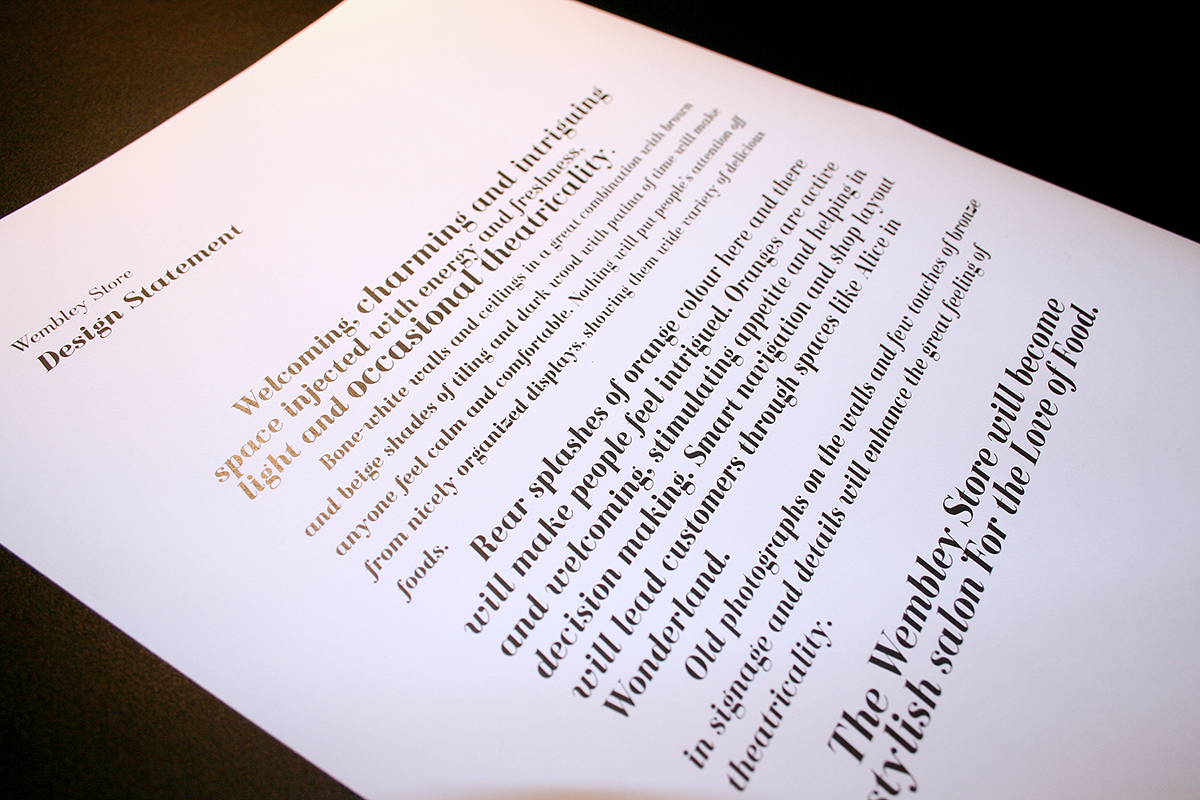 Wembley Store
Design Statement
Welcoming, charming and intriguing
space injected with energy and freshness,
light and occasional theatricality.
Bone-white walls and ceilings in a great combination with brown
and beige shades of tiling and dark wood with patina of time will make
anyone feel calm and comfortable. Nothing will put people's attention off
from nicely organized displays, showing them wide variety of delicious
foods.
Rear splashes of orange colour here and there
will make people feel intrigued. Oranges are active
and welcoming, stimulating appetite and helping in
decision making. Smart navigation and shop layout
will lead customers through spaces like Alice in
Wonderland.
Old photographs on the walls and few touches of bronze
in signage and details will enhance the great feeling of
theatricality.
The Wembley Store will become
stylish salon For the Love of Food.